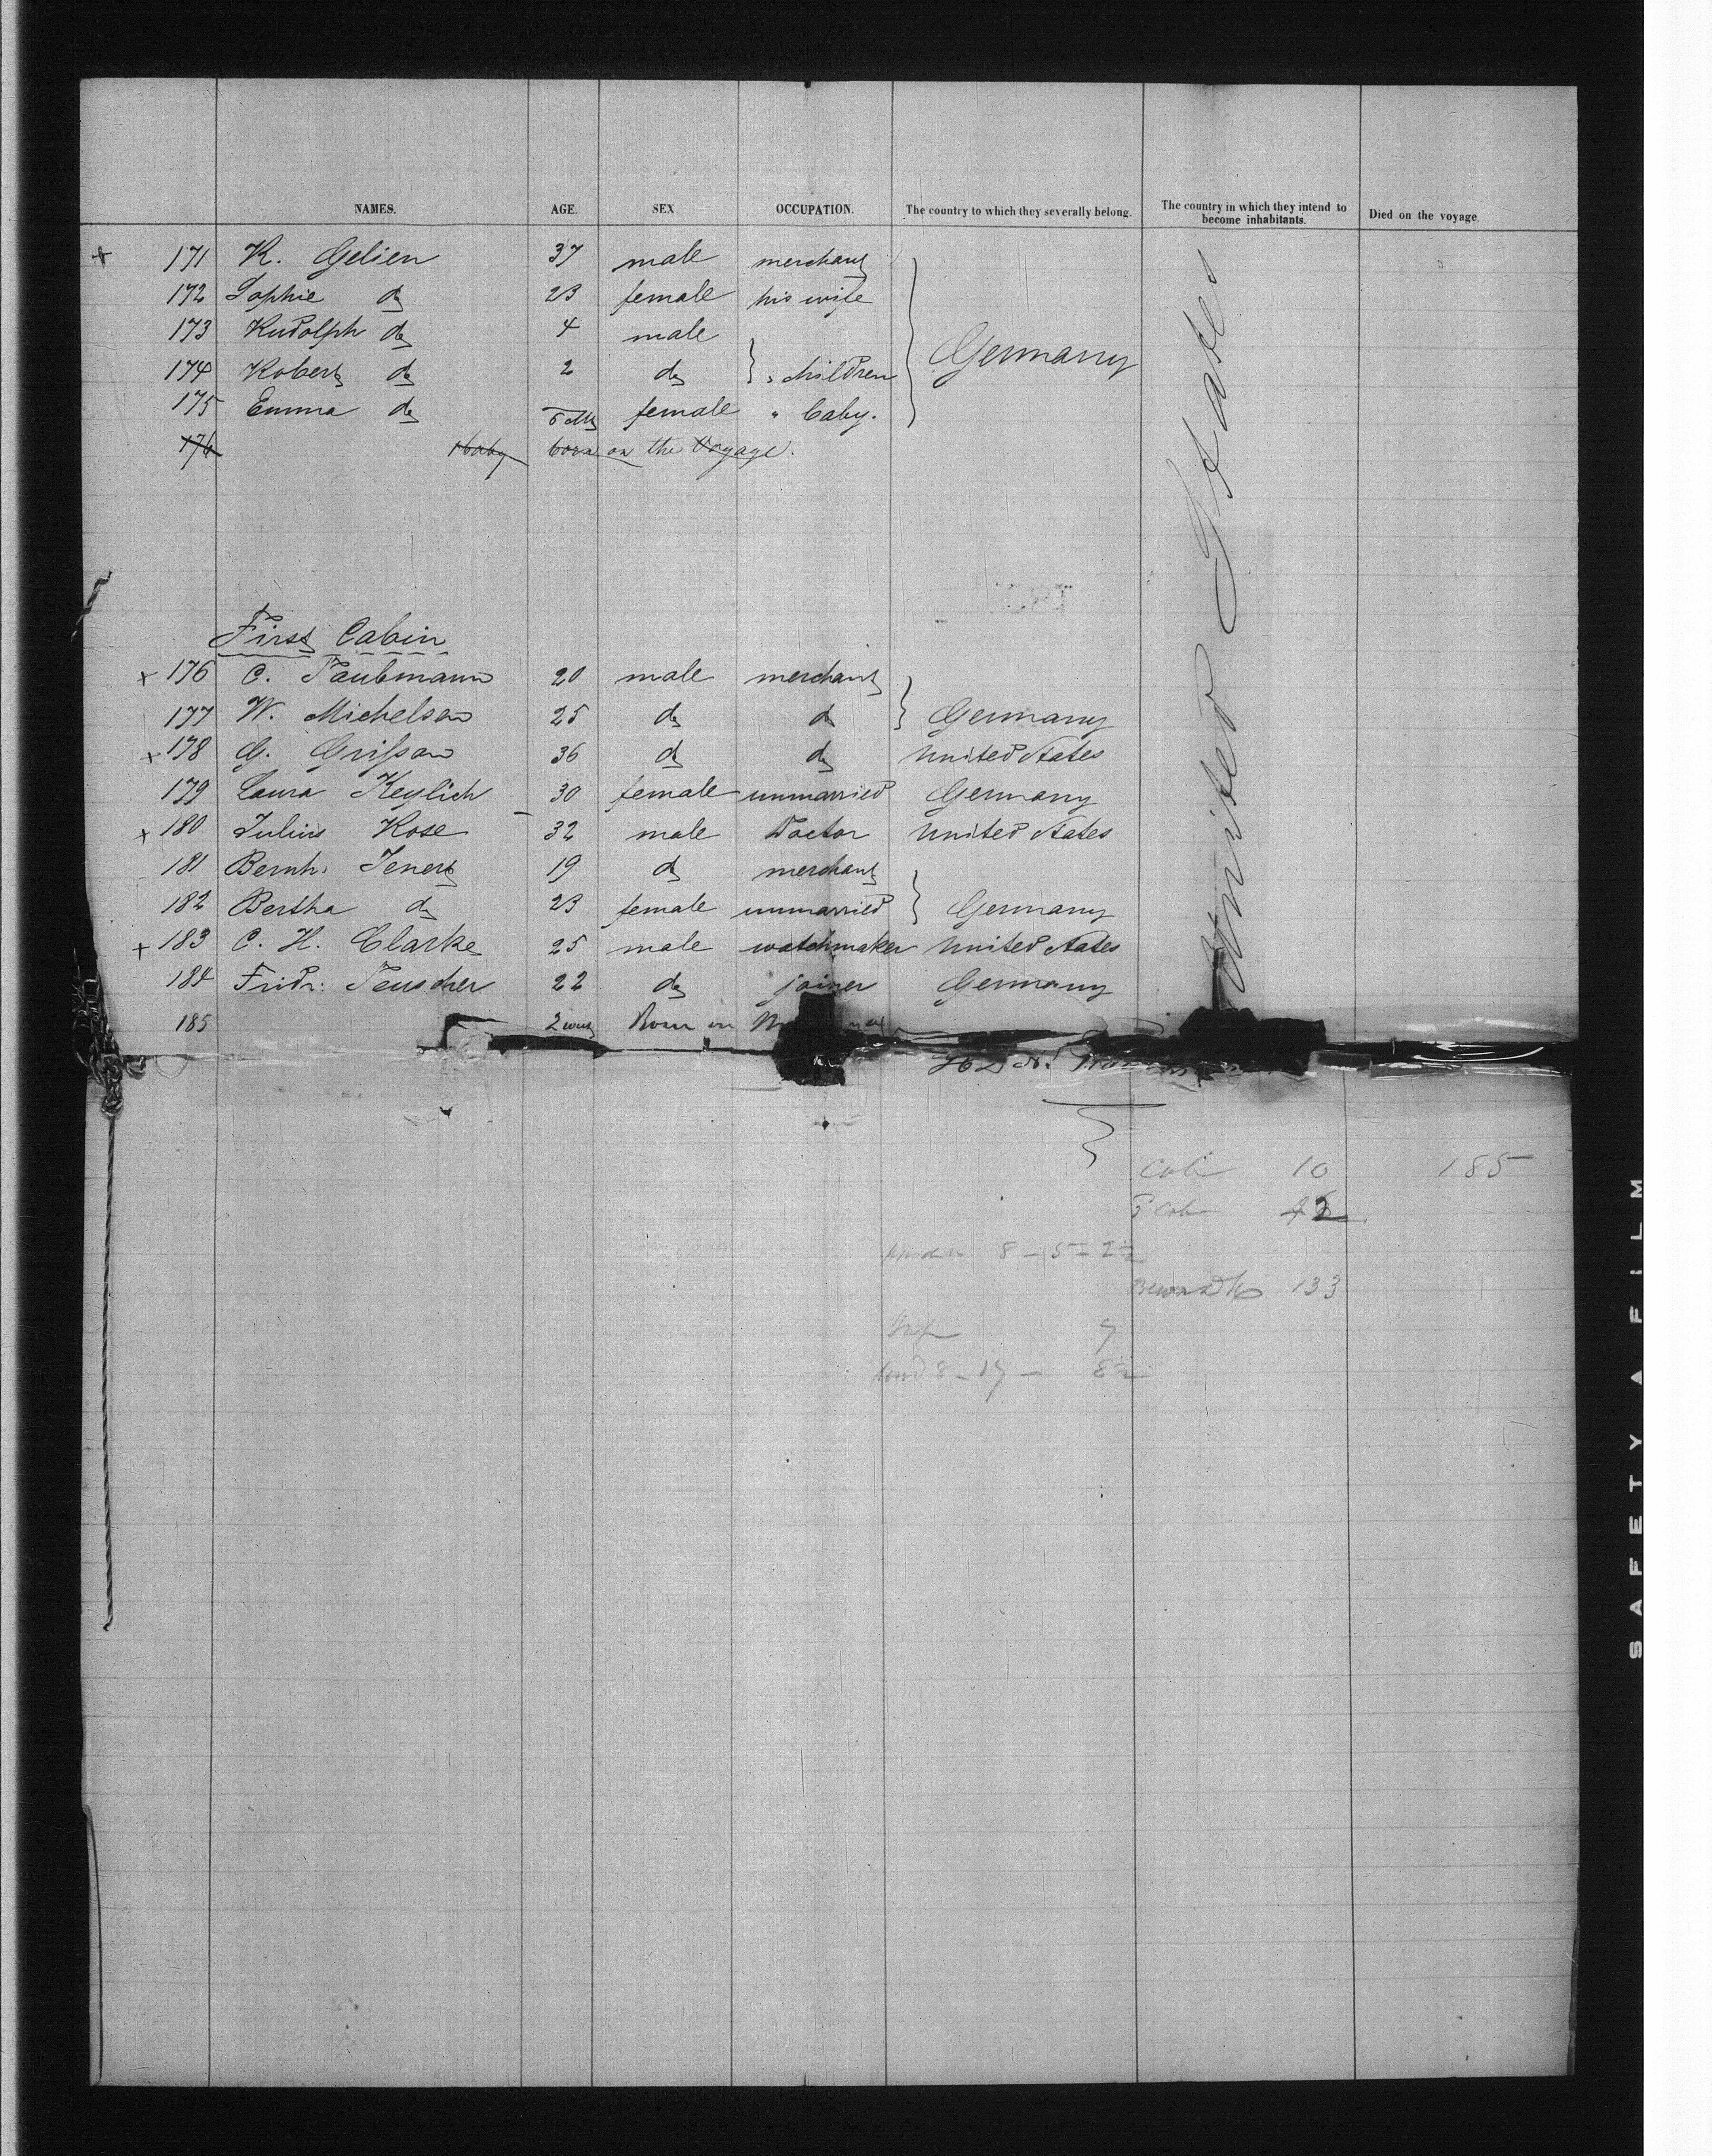 NAMES. AGE. SEX. OCCUPATION. The country to which they severally belong. The country in which they intend to become inhabitants. Died on the voyage.
171 R. Gelien 37 male merchant
172 Sophie do 23 female his wife
173 Rudolph do 4 male
174 Robert do 2 do children Germany
175 Emma do female " baby.
176 1 baby born on the Voyage.
United States
First Cabin
176 C. Taubmann 20 male merchant
177 W. Michelsen 25 do do Germany
178 G. Grisson 36 do do United States
179 Laura Keylich 30 female unmarried Germany
180 Julius Rose 32 male Doctor United States
181 Bernh. Tenert 19 do merchant
182 Bertha do 23 female unmarried Germany
183 C. H. Clarke 25 male watchmaker United States
184 Fridr: Teuscher 22 do joiner Germany
185 Born on
10 185
42
8 - 5 = 2½
133
7
8 - 17 - 8½
SAFETY A FILM